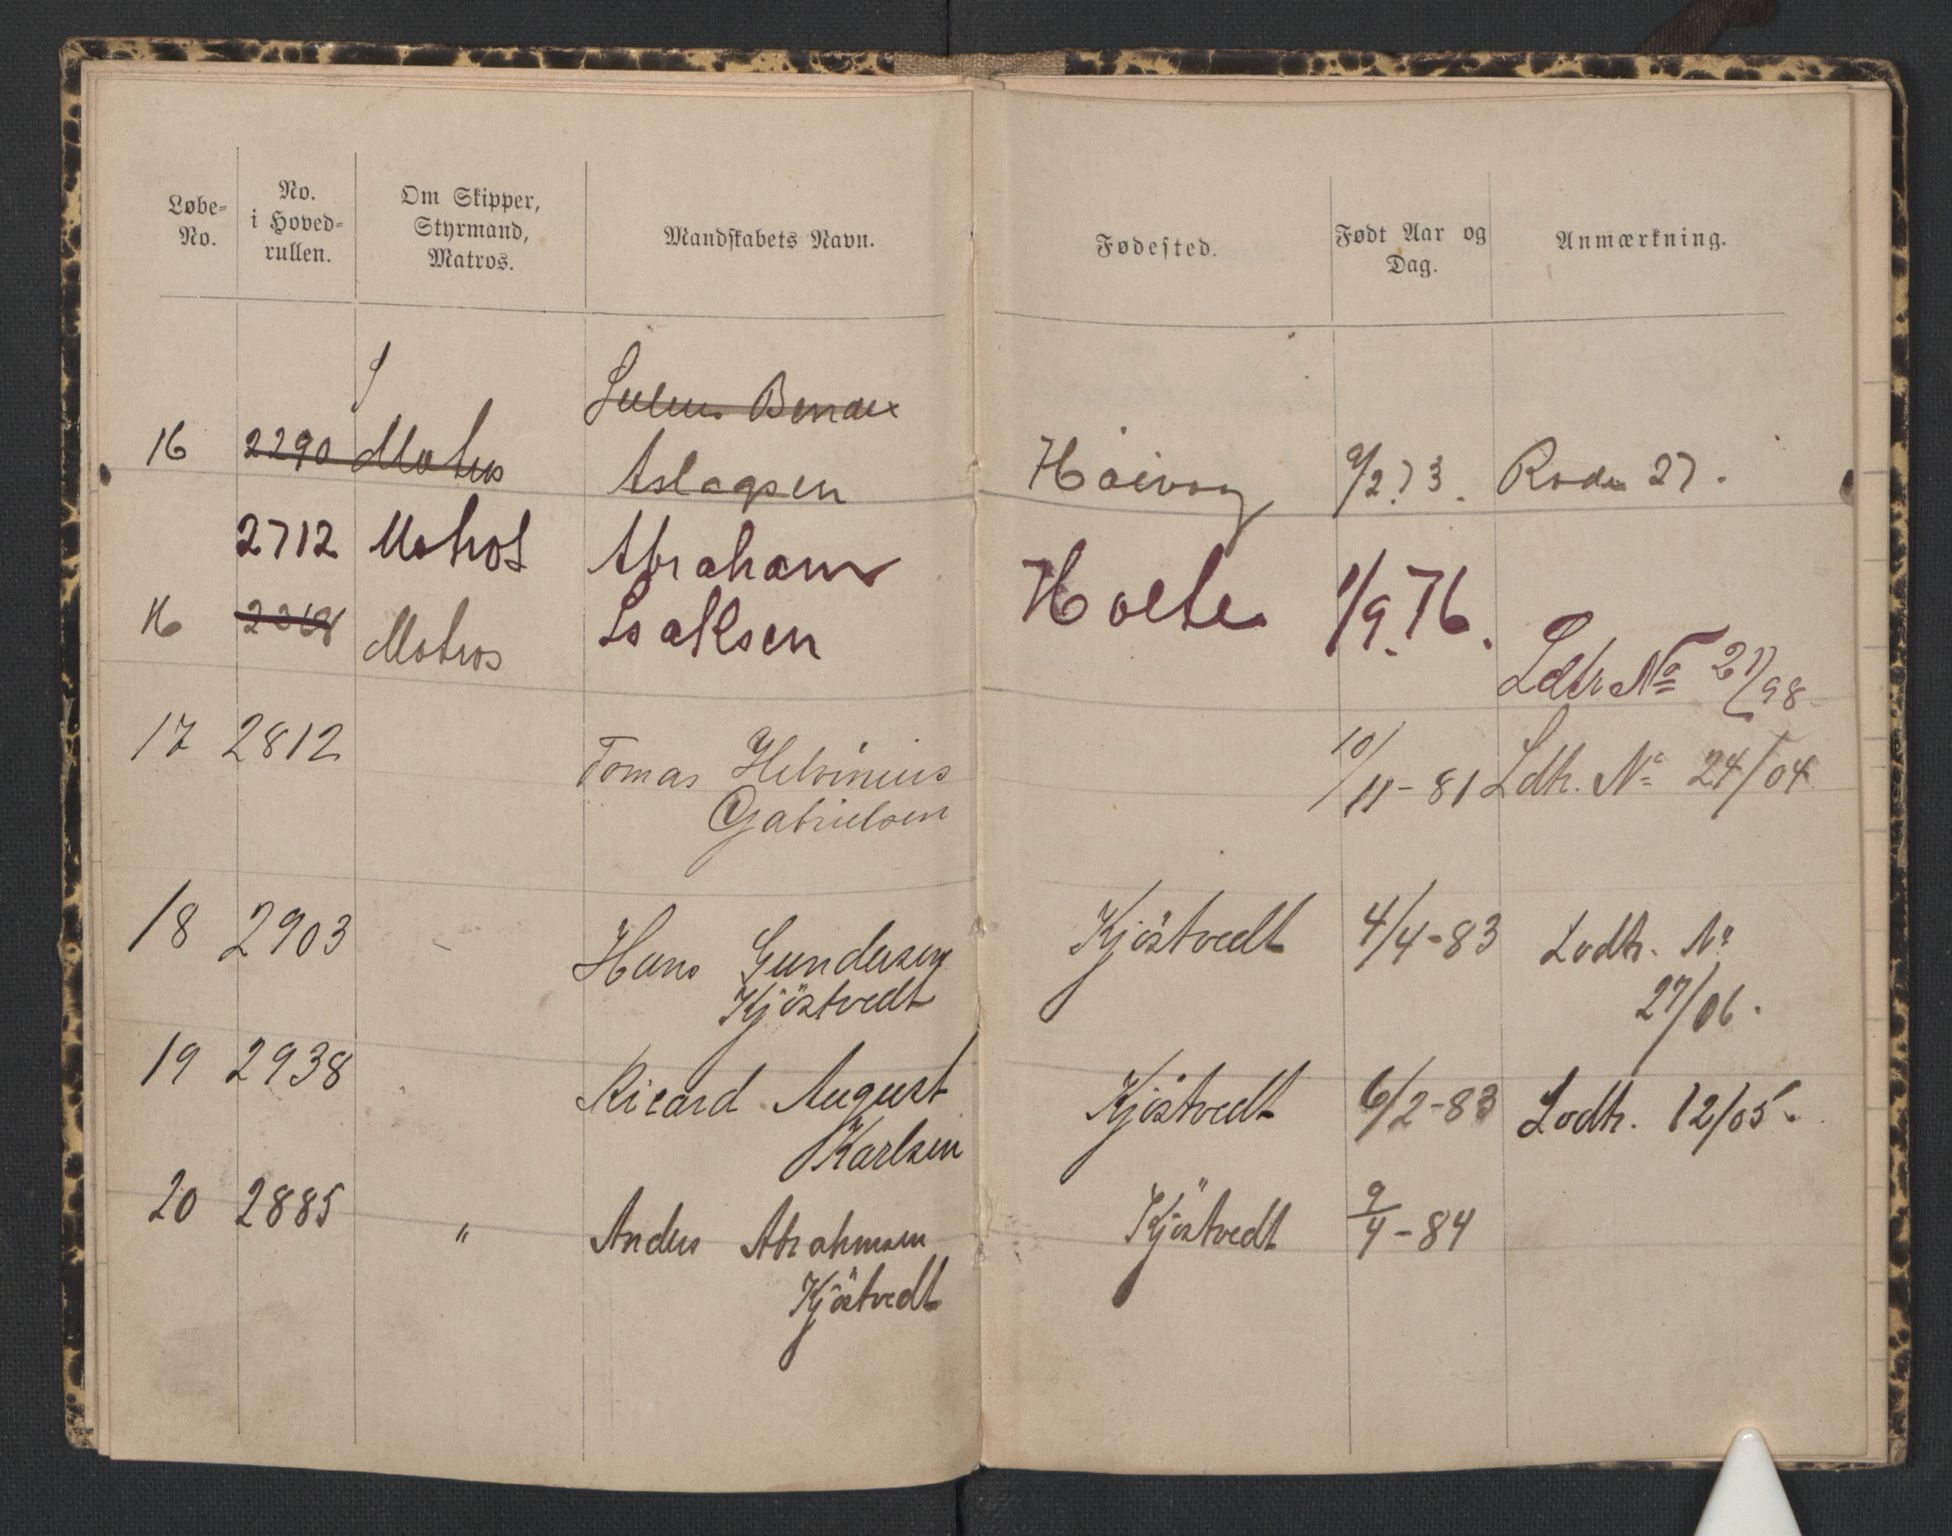 Løbe-No. No. i Hoved-rullen. Om Skipper, Styrmand, Matros. Mandskabets Navn. Fødested. Født Aar og Dag. Anmærkning.
Bendix
16 2290 Matros Aslagsen Höivog 9/2 73. Rode 27.
2712 Matros Abraham
16 Matros Isaksen Holte 1/9. 76. Ldtr No 21/98
17 2812 Tomas Helvinius 10/11-81 Ldtr. No 24/04
Gabrielsen
18 2903 Hans Gundersen Kjöstvedt 4/4-83 Lodtr. No
Kjöstvedt 27/06.
19 2938 Ricard August Kjöstvedt 6/2-83 Lodtr. 12/05.
Karlsen
20 2885 " Anders Abrahmsen Kjöstvedt 9/4-84
Kjöstvedt